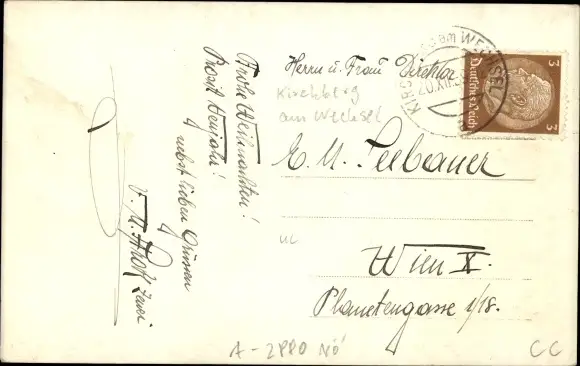 Frohe Weihnachten!
Prosit Neujahr!
nebst lieben Grüssen
Herrn u. Frau Direktor
Kirchberg
am Wechsel
E. M. Seebauer
UL
Wien X.
Planetengasse 1/18.
A-2880 NÖ
CC
KIRCHBERG am WECHSEL
20.XII.38
Deutsches Reich
3
3